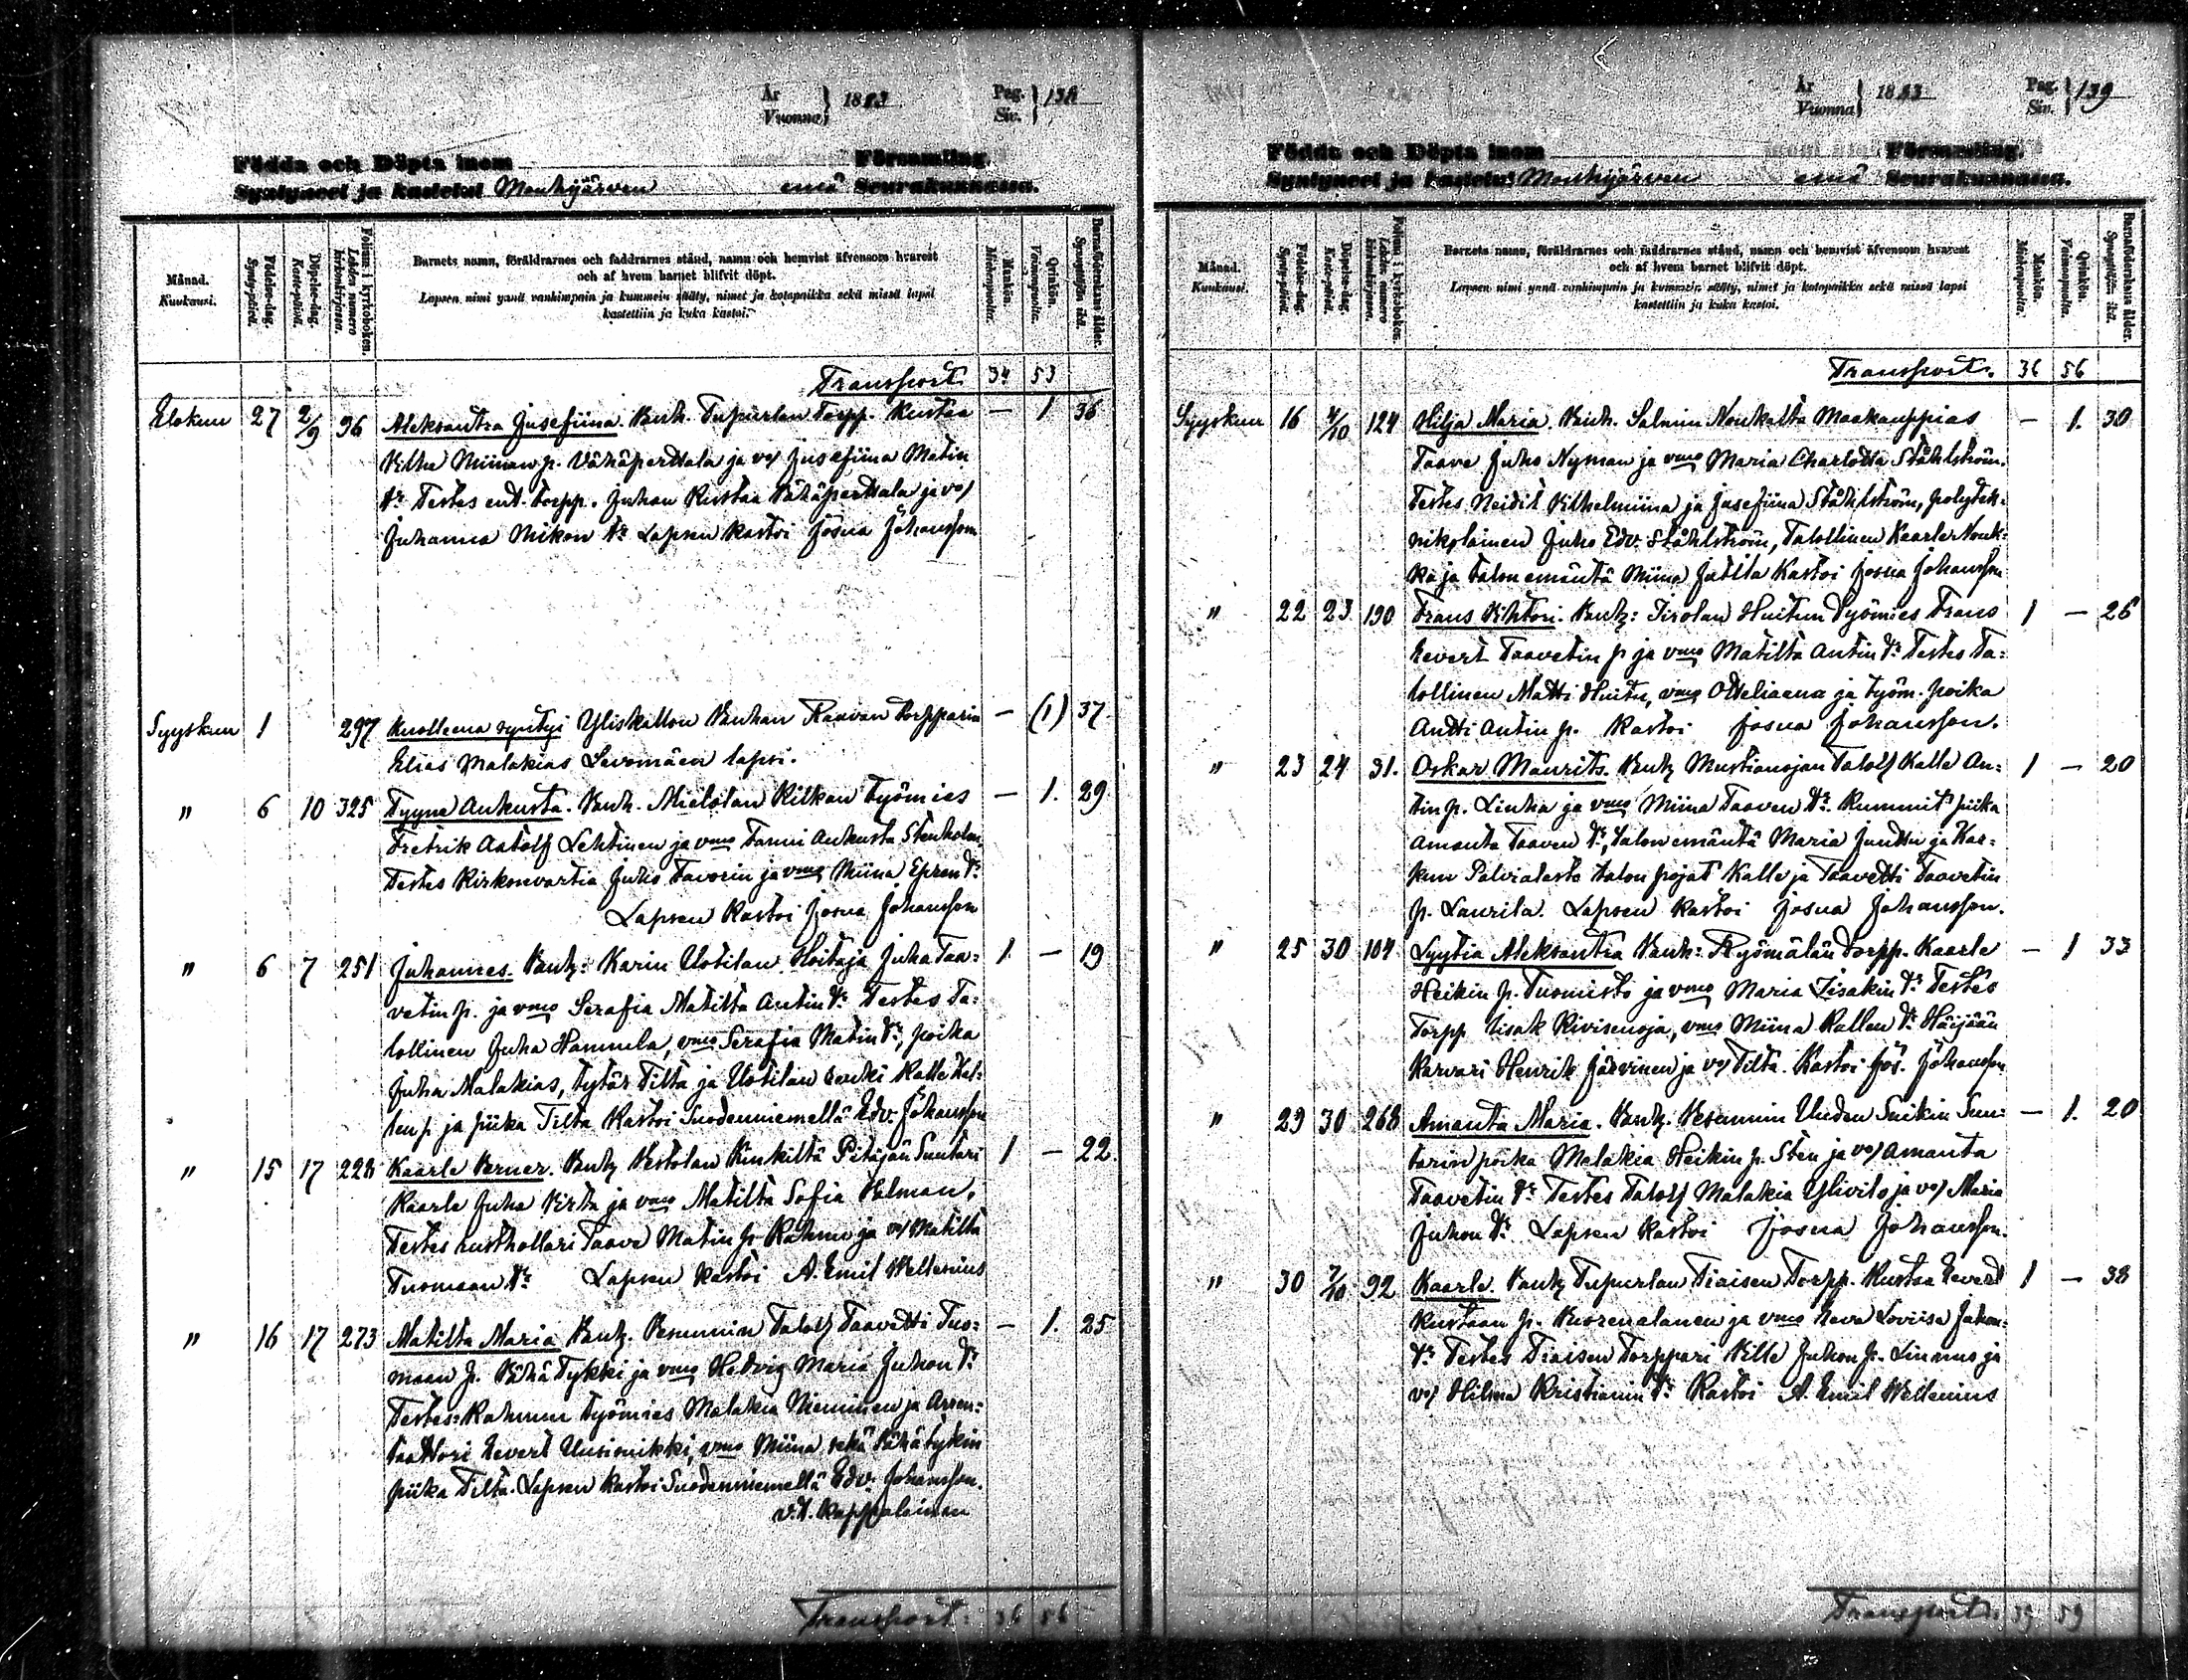 År
Vuonna } 1883
Pag.
Siv. } 138
Födda och Döpta inom Församling.
Syntyneet ja kastetut Mouhijärven emä Seurakunnassa.
Månad.
Kuukausi.
Födelse-dag.
Syntypäivä.
Döpelse-dag.
Kaste-päivä.
Folium i kyrkoboken.
Lehden numero kirkonkirjassa.
Barnets namn, föräldrarnes och faddrarnes stånd, namn och hemvist äfvensom hvarest
och af hvem barnet blifvit döpt.
Lapsen nimi ynnä vanhimpain ja kummein sääty, nimet ja kotopaikka sekä missä lapsi
kastettiin ja kuka kastoi.
Mankön.
Miehenpuolia.
Qvinkön.
Vaimonpuolia.
Barnaföderskans ålder.
Synnyttäjän ikä.
Transport. 34 53
Elokuu 27 2/9 96 Aleksantra Jusefiina. Vanh. Tupurlan Torp. Kustaa — 1 36
Vilhe Miinan p. Vähäperttala ja vo/ Jusefiina Matin
tr. Testes ent. torpp. Juhan Kustaa Vähäperttala ja vo/
Juhanna Mikon tr. Lapsen kastoi Josua Johansson
Syyskuu 1 297 Kuolleena syntyi Yliskallon Vanhan Raavan torpparin — (1) 37.
Elias Malakias Savomäen lapsi.
" 6 10 325 Tyyne Aukusta. Vanh. Mielolan Kilkan Työmies — 1. 29.
Fretrik Aatolf Lehtinen ja vmo Fanni Aukusta Stenholm,
Testes Kirkonvartia Juho Favorin ja vmo Miina Epran tr.
Lapsen kastoi Josua Johansson
" 6 7 251 Juhannes. Vanh: Karin Uotilan Hoitaja Juha Taa-
1 — 19
vetin p. ja vmo Serafia Matilta Antin tr. Testes Ta-
lollinen Juha Hannula, vmo Serafia Matin tr, poika
Juha Malakias, tytär Tilta ja Uotilan renki Kalle Kal-
len p. ja piika Tilta Kastoi Suodenniemellä Edv. Johansson
" 15 17 228 Kaarle Verner. Vanh. Vestolan Pitäjän Suutari 1 — 22.
Kaarle Juha Virta ja vmo Matilta Sofia Helman,
Testes rusthollari Taave Matin p. Rahmu ja vo/ Matilta
Tuomaan tr. Lapsen kastoi A. Emil Wellenius
" 16 17 273 Matilta Maria Vanh. Pesurinin Talolf Taavetti Tuo-
— 1. 25
maan p. Vähä Tykki ja vmo Hedvig Maria Juhon tr.
Testes: Rahmun Työmies Malakia Nieminen ja Arren-
taattori Eevert Uusiruikki, vmo Miina sekä Vähätykin
piika Tilta. Lapsen kastoi Suodenniemellä Edv. Johansson.
v.t. kappalainen
Transport: 36 56
År
Vuonna } 1883
Pag.
Siv. } 139
Födda och Döpta inom Församling.
Syntyneet ja kastetut Mouhijärven emä Seurakunnassa.
Månad.
Kuukausi.
Födelse-dag.
Syntypäivä.
Döpelse-dag.
Kaste-päivä.
Folium i kyrkoboken.
Lehden numero kirkonkirjassa.
Barnets namn, föräldrarnes och faddrarnes stånd, namn och hemvist äfvensom hvarest
och af hvem barnet blifvit döpt.
Lapsen nimi ynnä vanhimpain ja kummein sääty, nimet ja kotopaikka sekä missä lapsi
kastettiin ja kuka kastoi.
Mankön.
Miehenpuolia.
Qvinkön.
Vaimonpuolia.
Barnaföderskans ålder.
Synnyttäjän ikä.
Transport. 36 56
Syyskuu 16 4/10 124 Hilja Maria. Vanh. Salmin Noukalta Maakauppias — 1. 30
Taave Juho Nyman ja vmo Maria Charlotta Ståhlström.
Testes Neidit Vilhelmiina ja Jusefiina Ståhlström, polytek-
nikolainen Juho Edv. Ståhlström, Talollinen Kaarle Nouk-
ka ja talon emäntä Miina Jutila Kastoi Josua Johansson
" 22 23 190 Frans Vihtori. Vanh: Tirolan Huitun Työmies Frans 1 — 26
Eevert Taavetin p ja vmo Matilta Antin tr. Testes Ta-
lollinen Matti Huitu, vmo Otteliaana ja työm. poika
Antti Antin p. Kastoi Josua Johansson.
" 23 24 31. Oskar Maurits. Vanh. Mustianojan Talolf Kalle An-
1 — 20
tin p. Linha ja vmo Miina Taaven tr. Kummit piika
Amanta Taaven tr, talon emäntä Maria Junttu ja Kar-
kun Palvialasta talon pojat Kalle ja Taavetti Taavetin
p. Laurila. Lapsen kastoi Josua Johansson.
" 25 30 104 Lyytia Aleksantra Vanh: Ryömälän torpp. Kaarle — 1 33
Heikin p. Tuomisto ja vmo Maria Iisakin tr. Testes
Torpp Iisak Kivisenoja, vmo Miina Kallen tr. Häijään
Karvari Henrik Järvinen ja vo/ Tilta. Kastoi Jos. Johansson
" 29 30 268 Amanta Maria. Vanh. Pesurinin Uuden Suikin Suu-
— 1. 20
tarin poika Malakia Heikin p. Sten ja vo/ Amanta
Taavetin tr. Testes Talolf Malakia Ylivilo ja vo/ Maria
Juhon tr. Lapsen kastoi Josua Johansson.
" 30 7/10 92 Kaarle. Vanh Tupurlan Tiaisen Torpp. Kustaa Eevert 1 — 38
Kustaan p. Vuorenalanen ja vmo Eeva Loviisa Juhan
tr. Testes Tiaisen Torppari Ville Juhon p. Linnus ja
vo/ Hilma Kristianin tr. Kastoi A. Emil Wellenius
Transport: 39 59